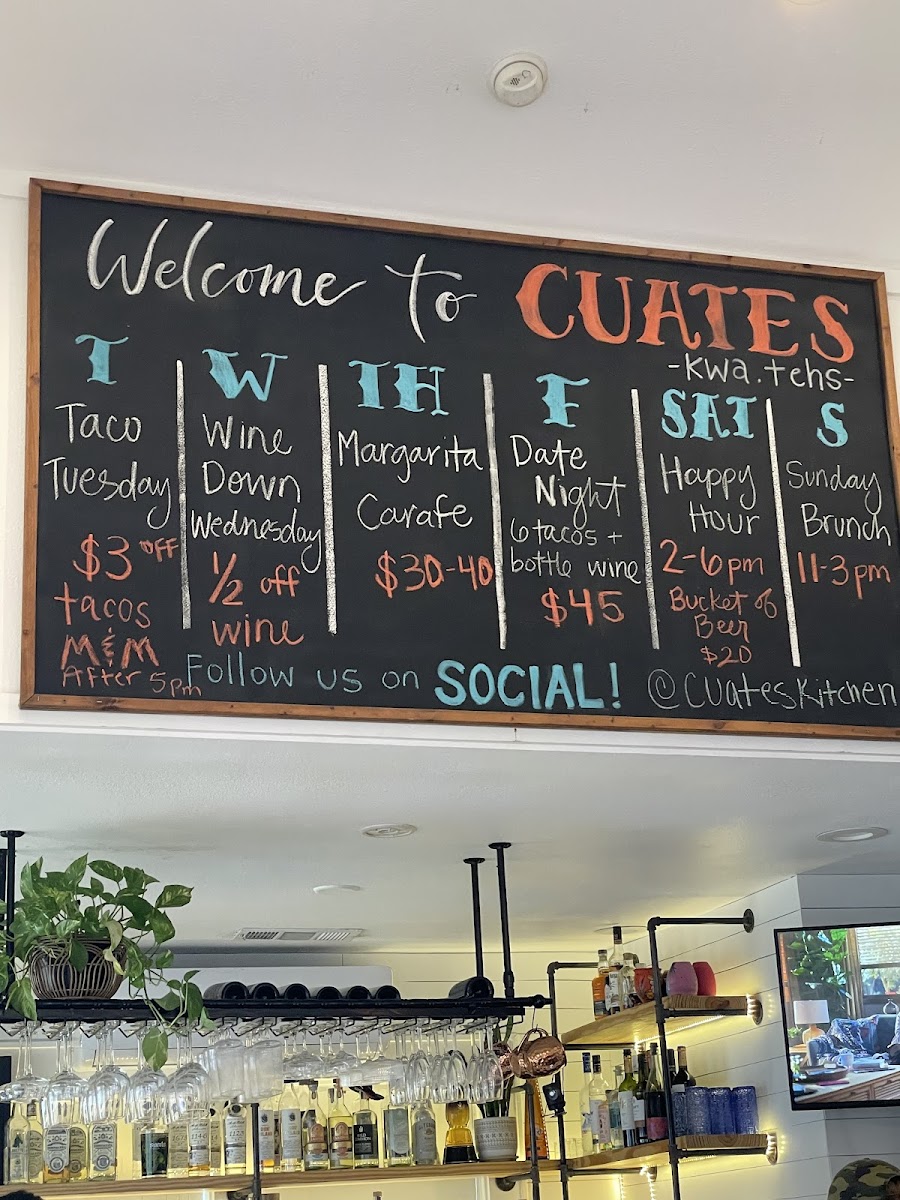 Welcome to CUATES
-kwa.tehs-
T
Taco
Tuesday
$3 off
tacos
M&M
After 5pm
W
Wine
Down
Wednesday
1/2 off
wine
TH
Margarita
Carafe
$30-40
F
Date
Night
6 tacos +
bottle wine
$45
SAT
Happy
Hour
2-6pm
Bucket of
Beer
$20
S
Sunday
Brunch
11-3pm
Follow us on SOCIAL! @CuatesKitchen